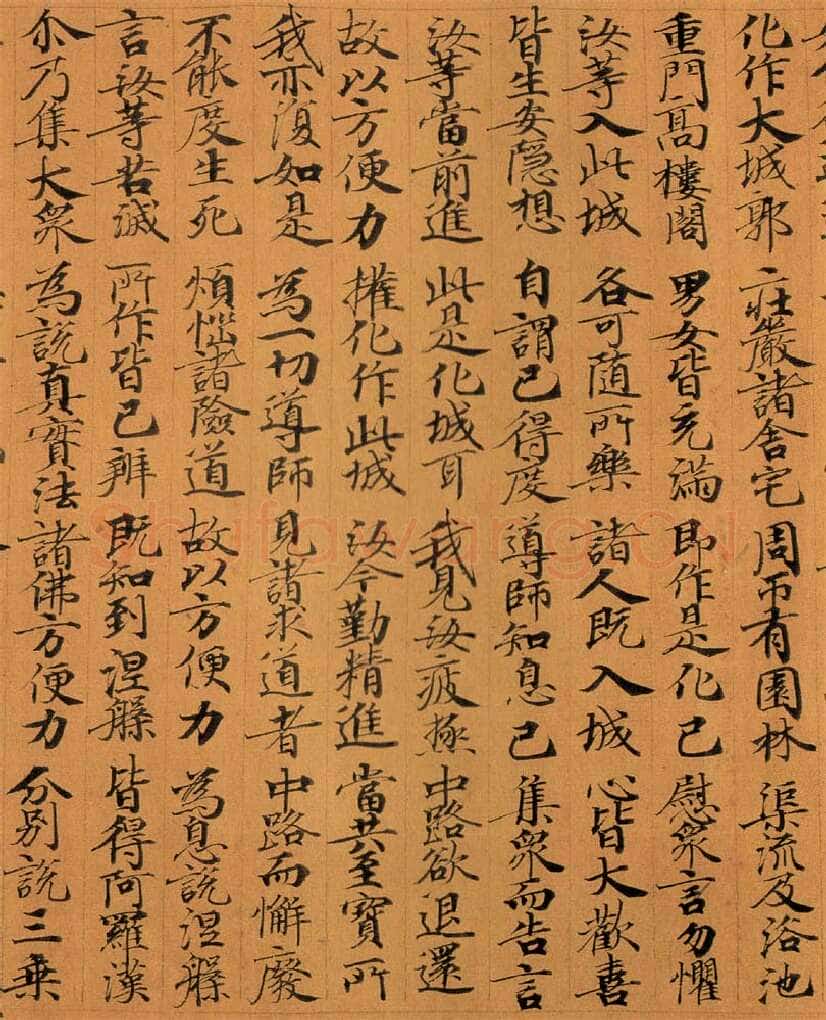 化作大城郭 庄嚴諸舍宅 周帀有園林 渠流及浴池
重門高樓閣 男女皆充滿 即作是化已 慰衆言勿懼
汝等入此城 各可随所樂 諸人既入城 心皆大歡喜
皆生安隱想 自謂已得度 導師知息已 集衆而告言
汝等當前進 此是化城耳 我見汝疲極 中路欲退還
故以方便力 權化作此城 汝今勤精進 當共至寶所
我亦復如是 為一切導師 見諸求道者 中路而懈廢
不能度生死 煩惱諸險道 故以方便力 為息說涅槃
言汝等苦滅 所作皆已辨 既知到涅槃 皆得阿羅漢
尒乃集大衆 為說真實法 諸佛方便力 分別說三乗